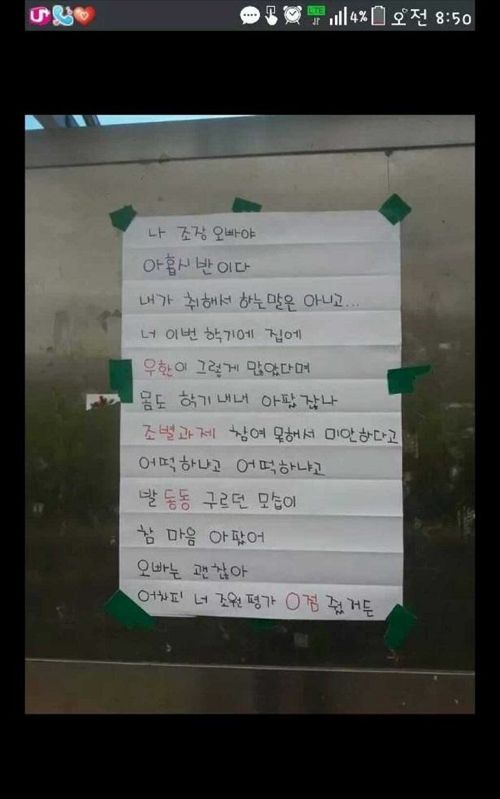 4% 오전 8:50
LTE
나 조장오빠야
아홉시반이다
내가 취해서 하는말은 아니고...
너 이번 학기에 집에
우환이 그렇게 많았다며
몸도 학기내내 아팠잖나
조별과제 참여 못해서 미안하다고
어떡하냐고 어떡하냐고
발 동동 구르던 모습이
참 마음 아팠어
오빠는 괜찮아
어차피 너 조원평가 0점 줬거든